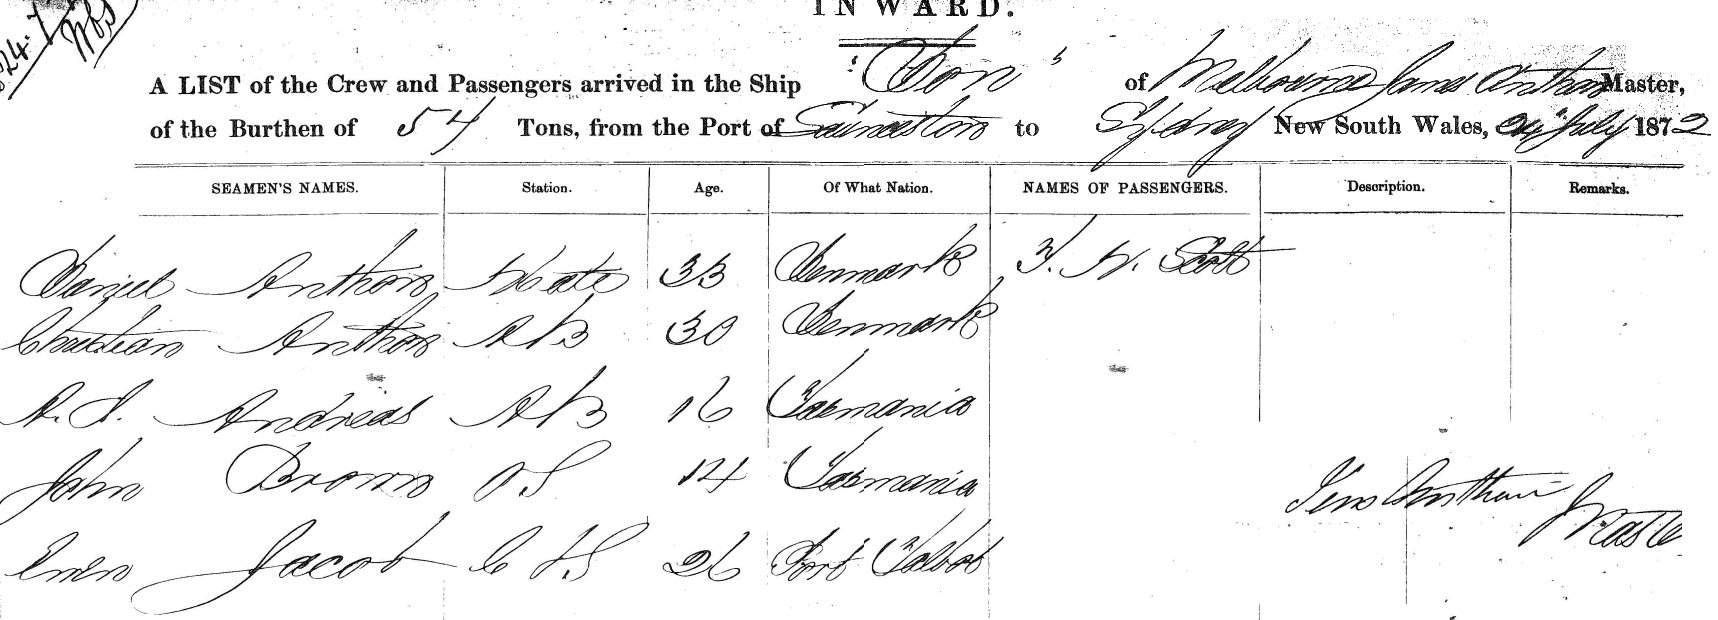 INWARD.
A LIST of the Crew and Passengers arrived in the Ship "Don" of Melbourne James Anthon Master,
of the Burthen of 54 Tons, from the Port of Launceston to Sydney New South Wales, July 1872
SEAMEN'S NAMES. Station. Age. Of What Nation. NAMES OF PASSENGERS. Description. Remarks.
Daniel Anthon Mate 33 Denmark W. Scott
Christian Anthon AB 30 Denmark
Andreas AB 16 Tasmania
John Brown OS 14 Tasmania
Jens Anthon Master
Jacob C & S 26 Port Talbot